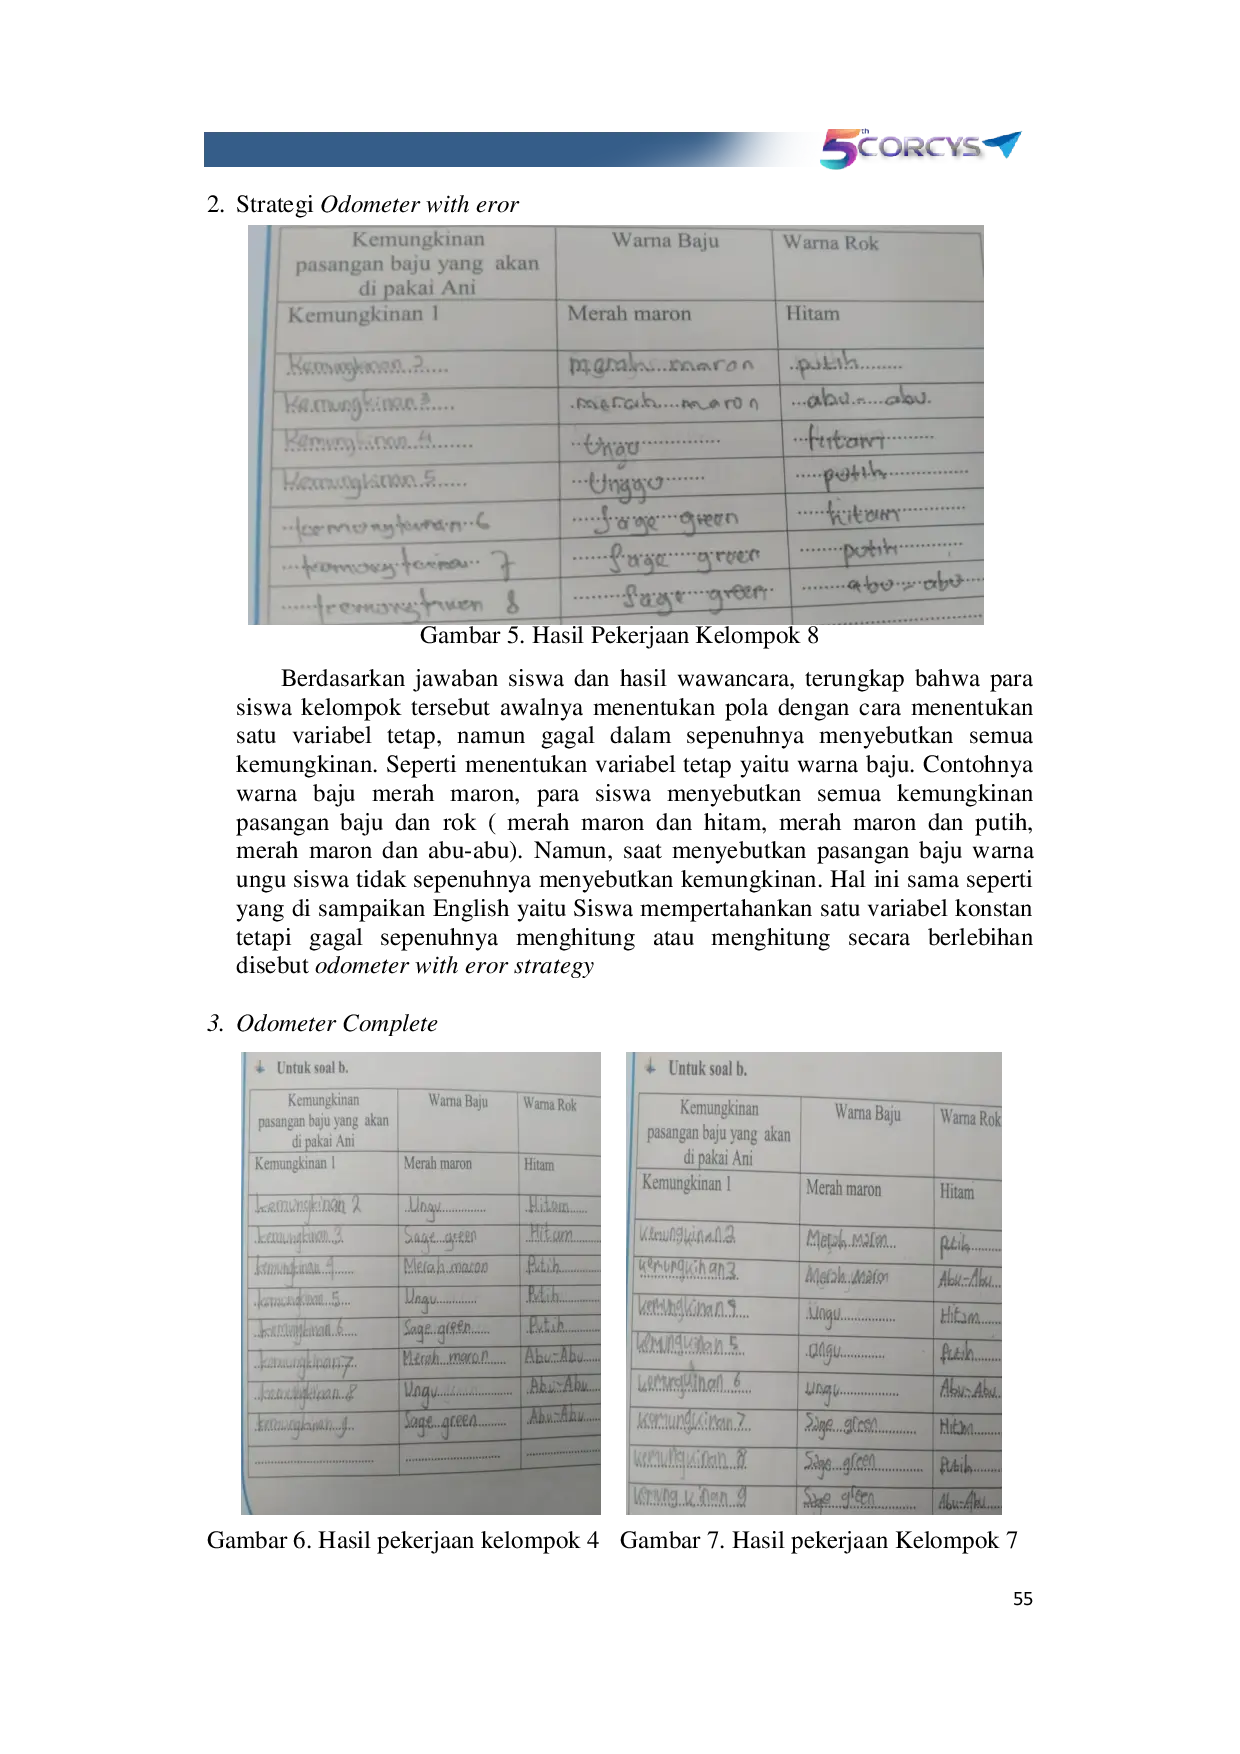 5th CORCYS
2. Strategi Odometer with eror
Kemungkinan pasangan baju yang akan di pakai Ani Warna Baju Warna Rok
Kemungkinan 1 Merah maron Hitam
Kemungkinan 2 merah maron putih
Kemungkinan 3 merah maron abu-abu
Kemungkinan 4 Ungu hitam
Kemungkinan 5 Unggu putih
6 sage green hitam
7 sage green putih
8 sage green abu-abu
Gambar 5. Hasil Pekerjaan Kelompok 8
Berdasarkan jawaban siswa dan hasil wawancara, terungkap bahwa para
siswa kelompok tersebut awalnya menentukan pola dengan cara menentukan
satu variabel tetap, namun gagal dalam sepenuhnya menyebutkan semua
kemungkinan. Seperti menentukan variabel tetap yaitu warna baju. Contohnya
warna baju merah maron, para siswa menyebutkan semua kemungkinan
pasangan baju dan rok ( merah maron dan hitam, merah maron dan putih,
merah maron dan abu-abu). Namun, saat menyebutkan pasangan baju warna
ungu siswa tidak sepenuhnya menyebutkan kemungkinan. Hal ini sama seperti
yang di sampaikan English yaitu Siswa mempertahankan satu variabel konstan
tetapi gagal sepenuhnya menghitung atau menghitung secara berlebihan
disebut odometer with eror strategy
3. Odometer Complete
Untuk soal b.
Kemungkinan pasangan baju yang akan di pakai Ani Warna Baju Warna Rok
Kemungkinan 1 Merah maron Hitam
kemungkinan 2 Ungu Hitam
kemungkinan 3 Sage green Hitam
kemungkinan 4 Merah maron Putih
kemungkinan 5 Ungu Putih
kemungkinan 6 Sage green Putih
kemungkinan 7 Merah maron Abu-Abu
kemungkinan 8 Ungu Abu-Abu
kemungkinan 9 Sage green Abu-Abu
Untuk soal b.
Kemungkinan pasangan baju yang akan di pakai Ani Warna Baju Warna Rok
Kemungkinan 1 Merah maron Hitam
kemungkinan 2 Merah maron putih
kemungkinan 3 Merah maron Abu-Abu
kemungkinan 4 Ungu Hitam
kemungkinan 5 Ungu putih
kemungkinan 6 Ungu Abu-Abu
kemungkinan 7 Sage green Hitam
kemungkinan 8 Sage green Putih
kemungkinan 9 Sage green Abu-Abu
Gambar 6. Hasil pekerjaan kelompok 4 Gambar 7. Hasil pekerjaan Kelompok 7
55